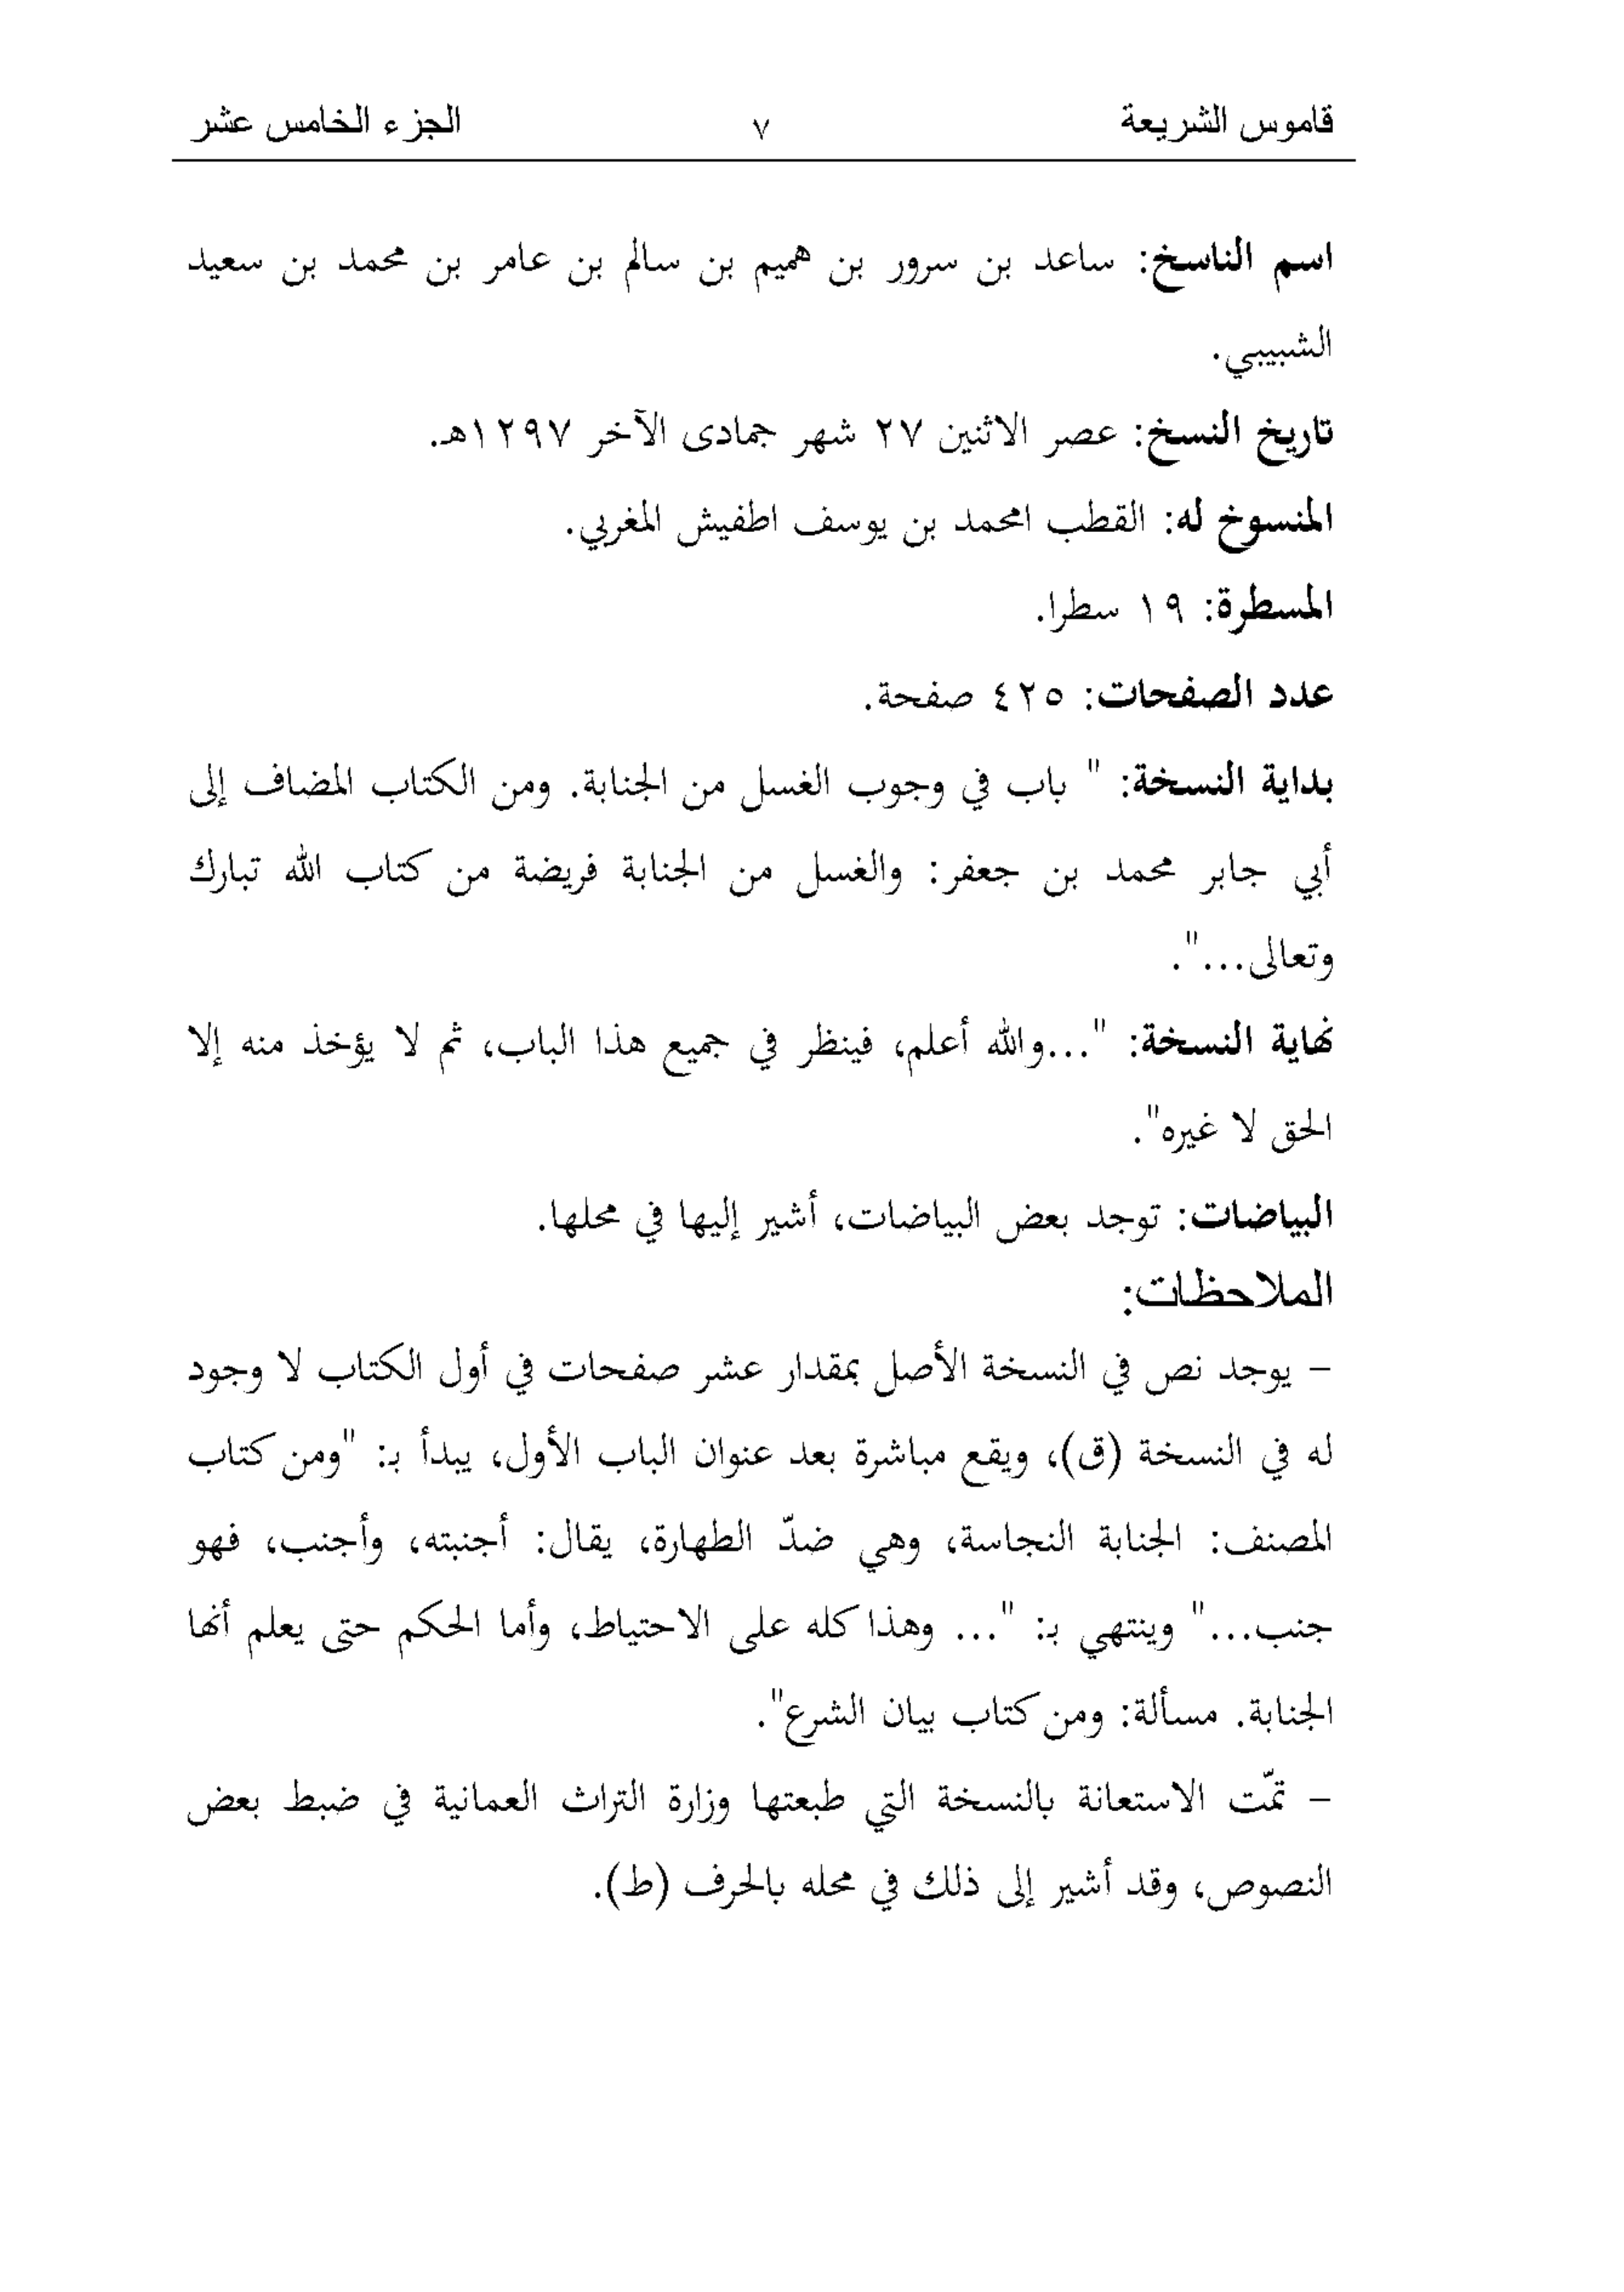 قاموس الشريعة ٧ الجزء الخامس عشر
اسم الناسخ: ساعد بن سرور بن هميم بن سالم بن عامر بن محمد بن سعيد
الشبيبي.
تاريخ النسخ: عصر الاثنين ٢٧ شهر جمادى الآخر ١٢٩٧هـ.
المنسوخ له: القطب امحمد بن يوسف اطفيش المغربي.
المسطرة: ١٩ سطرا.
عدد الصفحات: ٤٢٥ صفحة.
بداية النسخة: " باب في وجوب الغسل من الجنابة. ومن الكتاب المضاف إلى
أبي جابر محمد بن جعفر: والغسل من الجنابة فريضة من كتاب الله تبارك
وتعالى...".
نهاية النسخة: "...والله أعلم، فينظر في جميع هذا الباب، ثم لا يؤخذ منه إلا
الحق لا غيره".
البياضات: توجد بعض البياضات، أشير إليها في محلها.
الملاحظات:
– يوجد نص في النسخة الأصل بمقدار عشر صفحات في أول الكتاب لا وجود
له في النسخة (ق)، ويقع مباشرة بعد عنوان الباب الأول، يبدأ بـ: "ومن كتاب
المصنف: الجنابة النجاسة، وهي ضدّ الطهارة، يقال: أجنبته، وأجنب، فهو
جنب..." وينتهي بـ: "... وهذا كله على الاحتياط، وأما الحكم حتى يعلم أنها
الجنابة. مسألة: ومن كتاب بيان الشرع".
– تمّت الاستعانة بالنسخة التي طبعتها وزارة التراث العمانية في ضبط بعض
النصوص، وقد أشير إلى ذلك في محله بالحرف (ط).